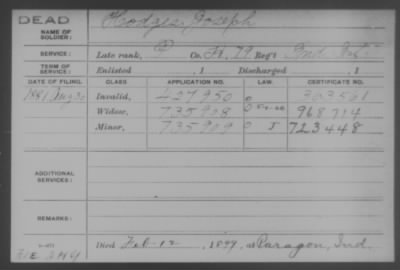 DEAD
NAME OF SOLDIER: Hodges Joseph
SERVICE: Late rank, P Co. 79 Reg't Ind. Inf.
TERM OF SERVICE: Enlisted , 1 Discharged , 1
DATE OF FILING. CLASS. APPLICATION NO. LAW. CERTIFICATE NO.
1881 Aug 30 Invalid, 427950
Widow, 735908
Minor, 735909 723448
ADDITIONAL SERVICES:
REMARKS:
Died Feb-12 , 1899, at Paragon, Ind.